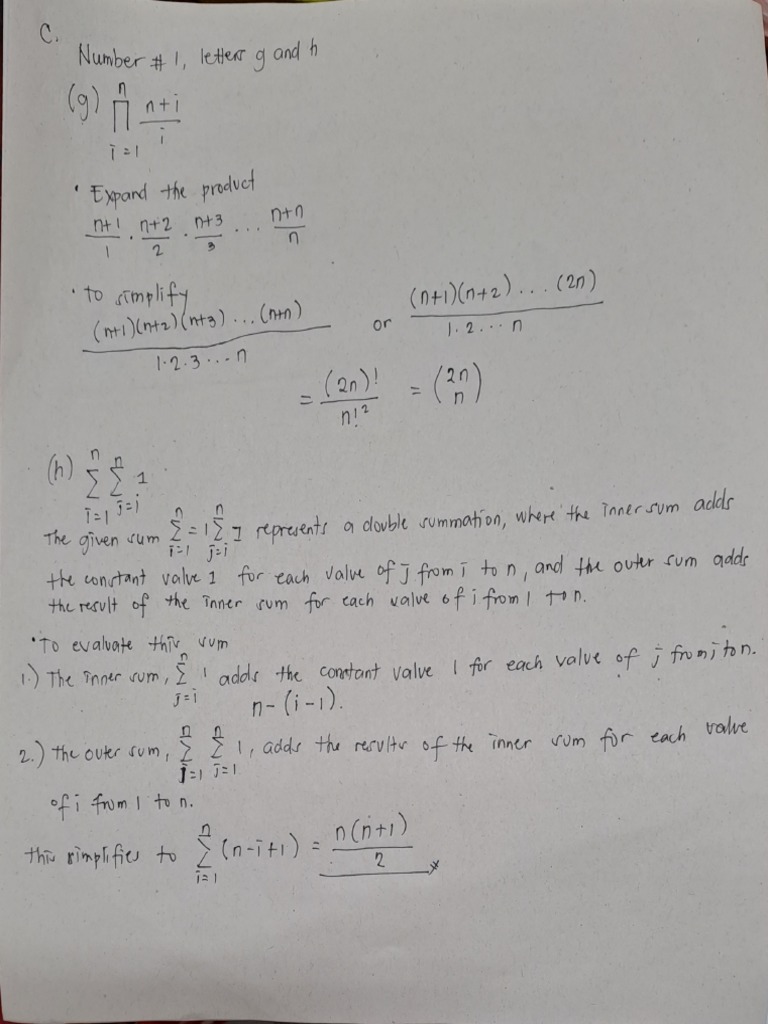 C.
Number # 1, letters g and h
(g) n∏i=1 n+i/i
• Expand the product
n+1/1 · n+2/2 · n+3/3 ... n+n/n
• To simplify
(n+1)(n+2)(n+3)...(n+n)/1·2·3...n or (n+1)(n+2)...(2n)/1·2...n
= (2n)!/n!² = (2n n)
(h) n∑i=1 n∑j=i 1
The given sum n∑i=1 = 1 n∑j=i 1 represents a double summation, where the inner sum adds
the constant value 1 for each value of j from i to n, and the outer sum adds
the result of the inner sum for each value of i from 1 to n.
• To evaluate this sum
1.) The inner sum, n∑j=i 1 adds the constant value 1 for each value of j from i to n.
n-(i-1).
2.) The outer sum, n∑i=1 n∑j=1 1, adds the results of the inner sum for each value
of i from 1 to n.
this simplifies to n∑i=1 (n-i+1) = n(n+1)/2